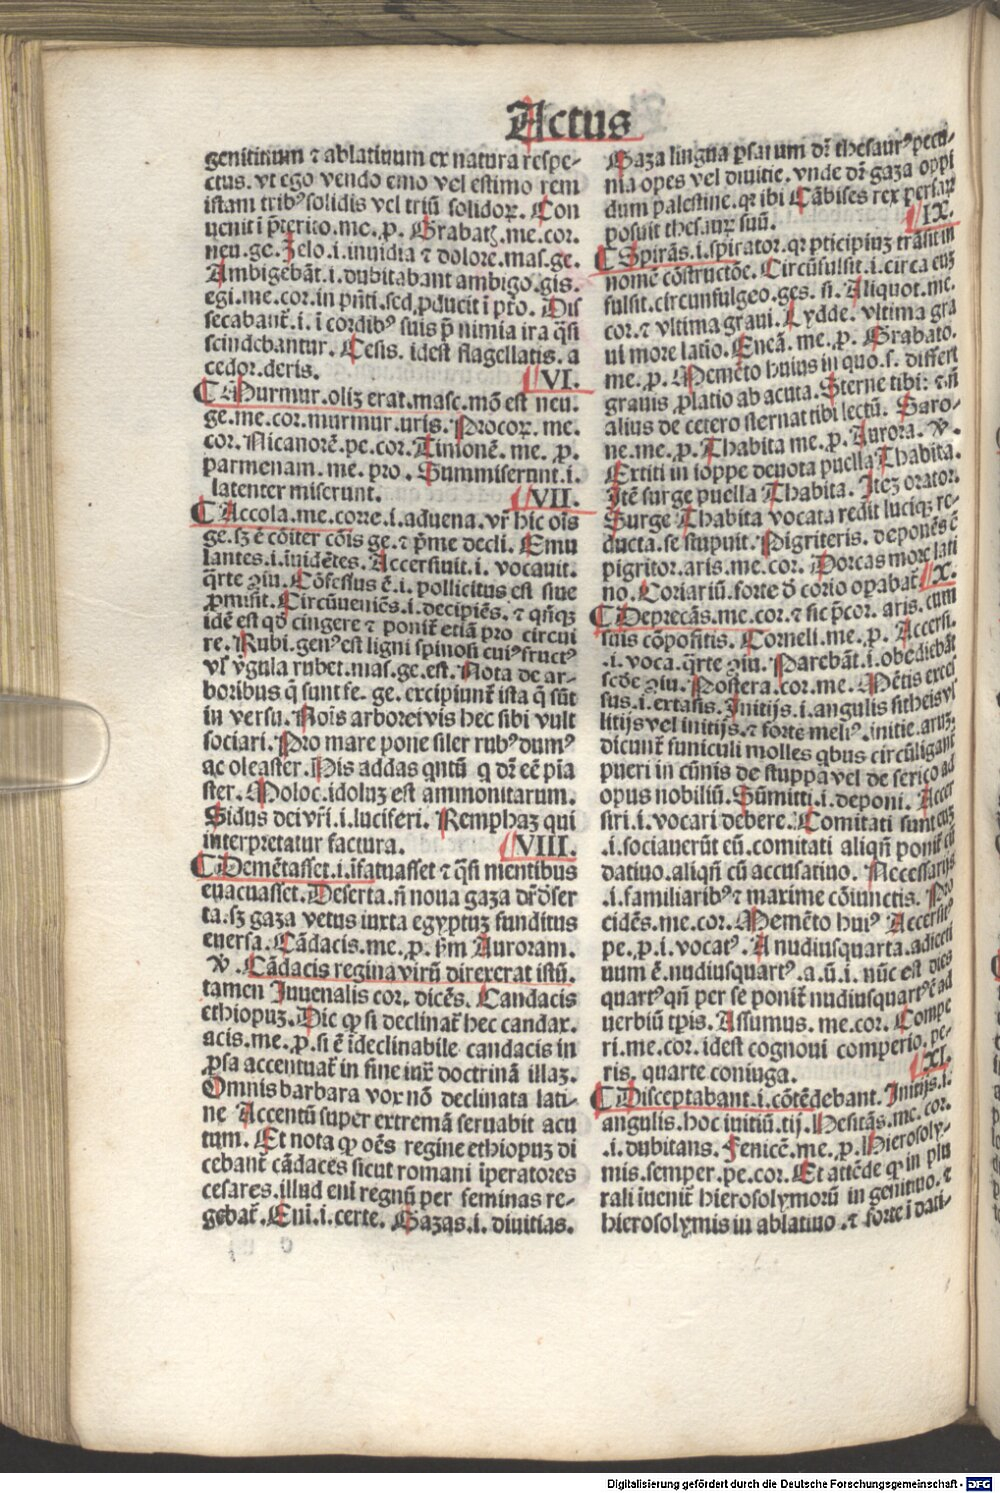 Actus
genitiuum ⁊ ablatiuum ex natura respe-
ctus. vt ego vendo emo vel estimo rem
istam tribꝰ solidis vel triũ solidoꝝ. Con
uenit i p̃terito. me. p. Grabatꝫ. me. cor.
neu. ge. Zelo. i. inuidia ⁊ dolore. mas. ge.
Ambigebãt. i. dubitabant ambigo. gis.
egi. me. cor. in pñti. sed ꝓducit i p̃to. Dis
secabant̃. i. i cordibꝰ suis p̃ nimia ira q̃si
scindebantur. Cesis. idest flagellatis. a
cedor. deris.
VI.
Murmur. oliꝫ erat. masc. mõ est neu.
ge. me. cor. murmur. uris. Procoꝝ. me.
cor. Nicanorẽ. pe. cor. Timonẽ. me. p.
parmenam. me. pro. Summiserunt. i.
latenter miserunt.
VII.
Accola. me. corre. i. aduena. vñ hic oĩs
ge. sꝫ ẽ cõiter cõis ge. ⁊ p̃me decli. Emu
lantes. i. inuidẽtes. Accersiuit. i. vocauit.
q̃rte ꝯiu. Cõfessus ẽ. i. pollicitus est siue
ꝓmisit. Circũueniẽs. i. decipiẽs. ⁊ qñqꝫ
idẽ est qd cingere ⁊ ponit̃ etiã pro circui
re. Rubi. genꝰ est ligni spinosi cuiꝰ fructꝰ
vl virgula rubet. mas. ge. est. Nota de ar-
boribus q̃ sunt fe. ge. excipiunt̃ ista q̃ sũt
in versu. Noĩs arborei vis hec sibi vult
sociari. Pro mare pone siler rubꝰ dumꝰ
ac oleaster. His addas qntũ q dr̃ eẽ pia
ster. Moloc. idoluꝫ est ammonitarum.
Sidus dei vr̃i. i. luciferi. Remphaꝫ qui
interpretatur factura.
VIII.
Demẽtasset. i. ifatuasset ⁊ q̃si mentibus
euacuasset. Deserta. ñ noua gaza dr̃ đser
ta. sꝫ gaza vetus iuxta egyptuꝫ funditus
euersa. Cãdacis. me. p. ẜm Auroram.
V̇. Cãdacis regina virũ direxerat istũ.
tamen Iuuenalis cor. dicẽs. Candacis
ethiopuꝫ. Dic qp si declinat̃ hec candax.
acis. me. p. si ẽ ideclinabile candacis in
ꝓsa accentuat̃ in fine iux̃ doctrinã illaꝫ.
Omnis barbara vox nõ declinata lati-
ne Accentũ super extremã seruabit acu
tum. Et nota qp oẽs regine ethiopuꝫ di
cebant̃ cãdaces sicut romani iperatores
cesares. illud eni regnũ per feminas re-
gebat̃. Eni. i. certe. Gazas. i. diuitias.
Gaza lingua psarum dr̃ thesaurꝰ pecu-
nia opes vel diuitie. vnde dr̃ gaza oppi
dum palestine. qꝛ ibi Cãbises rex persaꝝ
posuit thesauꝝ suũ.
IX.
Spirãs. i. spirator. qꝛ pticipiuꝫ trãsit in
nomẽ cõstructõe. Circũfulsit. i. circa euꝫ
fulsit. circunfulgeo. ges. si. Aliquot. me.
cor. ⁊ vltima graui. Lydde. vltima gra
ui more latio. Eneã. me. p. Grabato.
me. p. Memẽto huius in quo. s. differt
grauis ꝓlatio ab acuta. Sterne tibi: ⁊ ñ
alius de cetero sternat tibi lectũ. Saro-
ne. me. p. Thabita me. p. Aurora. V̇.
Extiti in ioppe deuota puella Thabita.
Itẽ surge puella Thabita. Iteꝫ orator.
Surge Thabita vocata redit luciqꝫ re-
ducta. se stupuit. Pigriteris. deponẽs ẽ
pigritor. aris. me. cor. Dorcas more lati
no. Coriariũ. forte đ corio opabat̃.
X.
Deprecãs. me. cor. ⁊ sic p̃cor. aris. cum
suis cõpositis. Corneli. me. p. Accersi.
. i. voca. q̃rte ꝯiu. Parebãt. i. obediebãt
scđe ꝯiu. Postera. cor. me. Mẽtis exces
sus. i. extasis. Initijs. i. angulis sitheis vl
litijs vel initijs. ⁊ forte meliꝰ. initie. aruꝫ.
dicunt̃ funiculi molles qbus circũligant̃
pueri in cũnis de stuppa vel de serico ad
opus nobiliũ. Sũmitti. i. deponi. Accer
siri. i. vocari debere. Comitati sunt euꝫ
. i. sociauerũt eũ. comitati aliqñ ponit̃ cũ
datiuo. aliqñ cũ accusatiuo. Necessarijs
. i. familiaribꝰ ⁊ maxime cõiunctis. Pro
cidẽs. me. cor. Memẽto huiꝰ Accersitꝰ
pe. p. i. vocatꝰ. A nudiusquarta. adiecti
uum ẽ. nudiusquartꝰ. a. ũ. i. nũc est dies
quartꝰ qñ per se ponit̃ nudiusquartꝰ ẽ ad
uerbiũ tp̃is. Assumus. me. cor. Compe
ri. me. cor. idest cognoui comperio. pe-
ris. quarte coniuga.
XI.
Disceptabant. i. cõtẽdebant. Initijs. i.
angulis. hoc initiũ. tij. Hesitãs. me. cor.
. i. dubitans. Fenicẽ. me. p. Hierosoly-
mis. semper. pe. cor. Et atiẽde qp in plu
rali iuenit̃ hierosolymorũ in genitiuo. ⁊
hierosolymis in ablatiuo. ⁊ forte i dati-
Digitalisierung gefördert durch die Deutsche Forschungsgemeinschaft - DFG